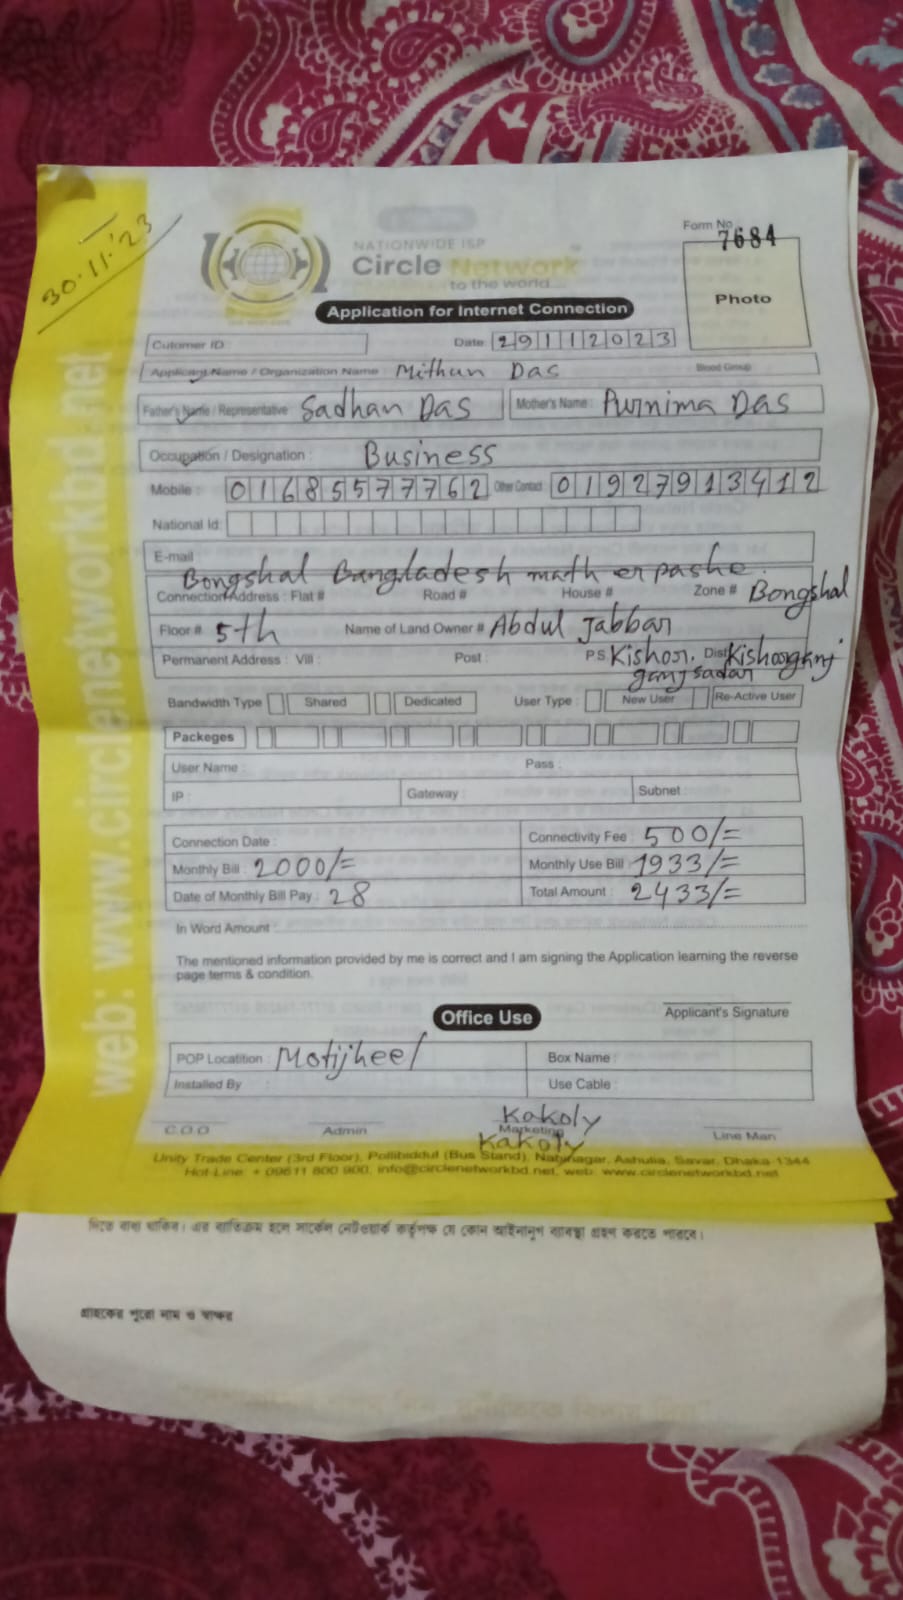 30.11.'23
Form No.
7684
NATIONWIDE ISP
Circle Network
to the world...
Photo
Application for Internet Connection
Cutomer ID :
Date: 29112023
Applicant Name / Organization Name : Mithun Das
Blood Group
Father's Name / Representative : Sadhan Das
Mother's Name : Purnima Das
Occupation / Designation : Business
Mobile : 01685577762 Other Contact : 01927913412
National Id:
E-mail
Bongshal Bangladesh math er pashe.
Connection Address : Flat # Road # House # Zone # Bongshal
Floor # 5th Name of Land Owner # Abdul Jabbar
Permanent Address : Vill : Post : P.S Kishor. Dist Kishorganj
ganj sadar
Bandwidth Type Shared Dedicated User Type : New User Re-Active User
Packeges
User Name : Pass :
IP : Gateway : Subnet :
Connection Date : Connectivity Fee : 500/=
Monthly Bill : 2000/= Monthly Use Bill : 1933/=
Date of Monthly Bill Pay : 28 Total Amount : 2433/=
In Word Amount :
The mentioned information provided by me is correct and I am signing the Application learning the reverse
page terms & condition.
Applicant's Signature
Office Use
POP Locatition : Motijheel Box Name :
Installed By : Use Cable :
Kakoly
C.O.O Admin Marketing Line Man
Kakoly
Unity Trade Center (3rd Floor), Pollibiddut (Bus Stand), Nabinagar, Ashulia, Savar, Dhaka-1344
Hot Line: + 09611 800 900, info@circlenetworkbd.net, web: www.circlenetworkbd.net
web: www.circlenetworkbd.net
দিতে বাধ্য থাকিব। এর ব্যতিক্রম হলে সার্কেল নেটওয়ার্ক কর্তৃপক্ষ যে কোন আইনানুগ ব্যবস্থা গ্রহণ করতে পারবে।
গ্রাহকের পুরো নাম ও স্বাক্ষর